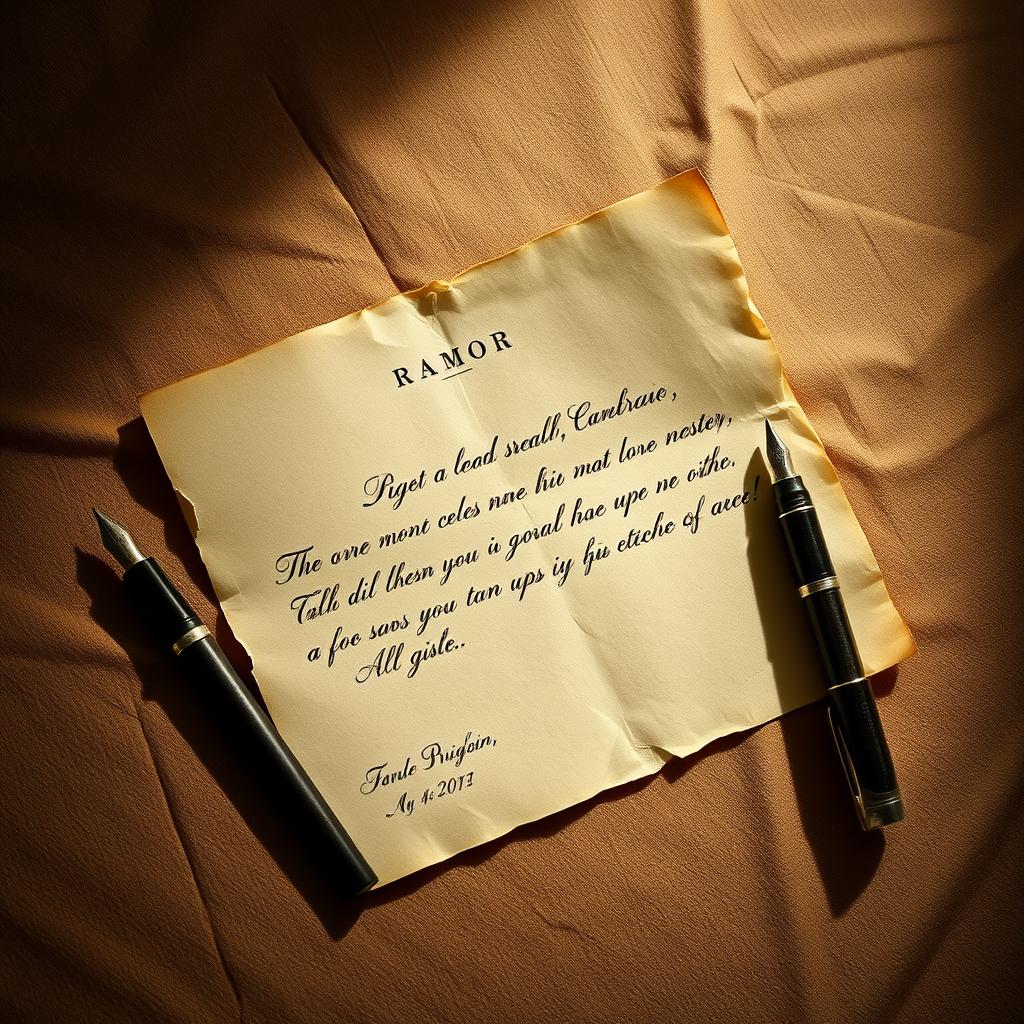 RAMOR
Pıget a lead sreall, Cambraie,
The ovre mont celes nne hic mat lone nestey,
Talh dil thesn you is goral hae upe ne oithe.
a foc savs you tan ups iy fıis etiche of arce!
All gisle..
Farıle Pruigfoin,
Ay 4c 2017